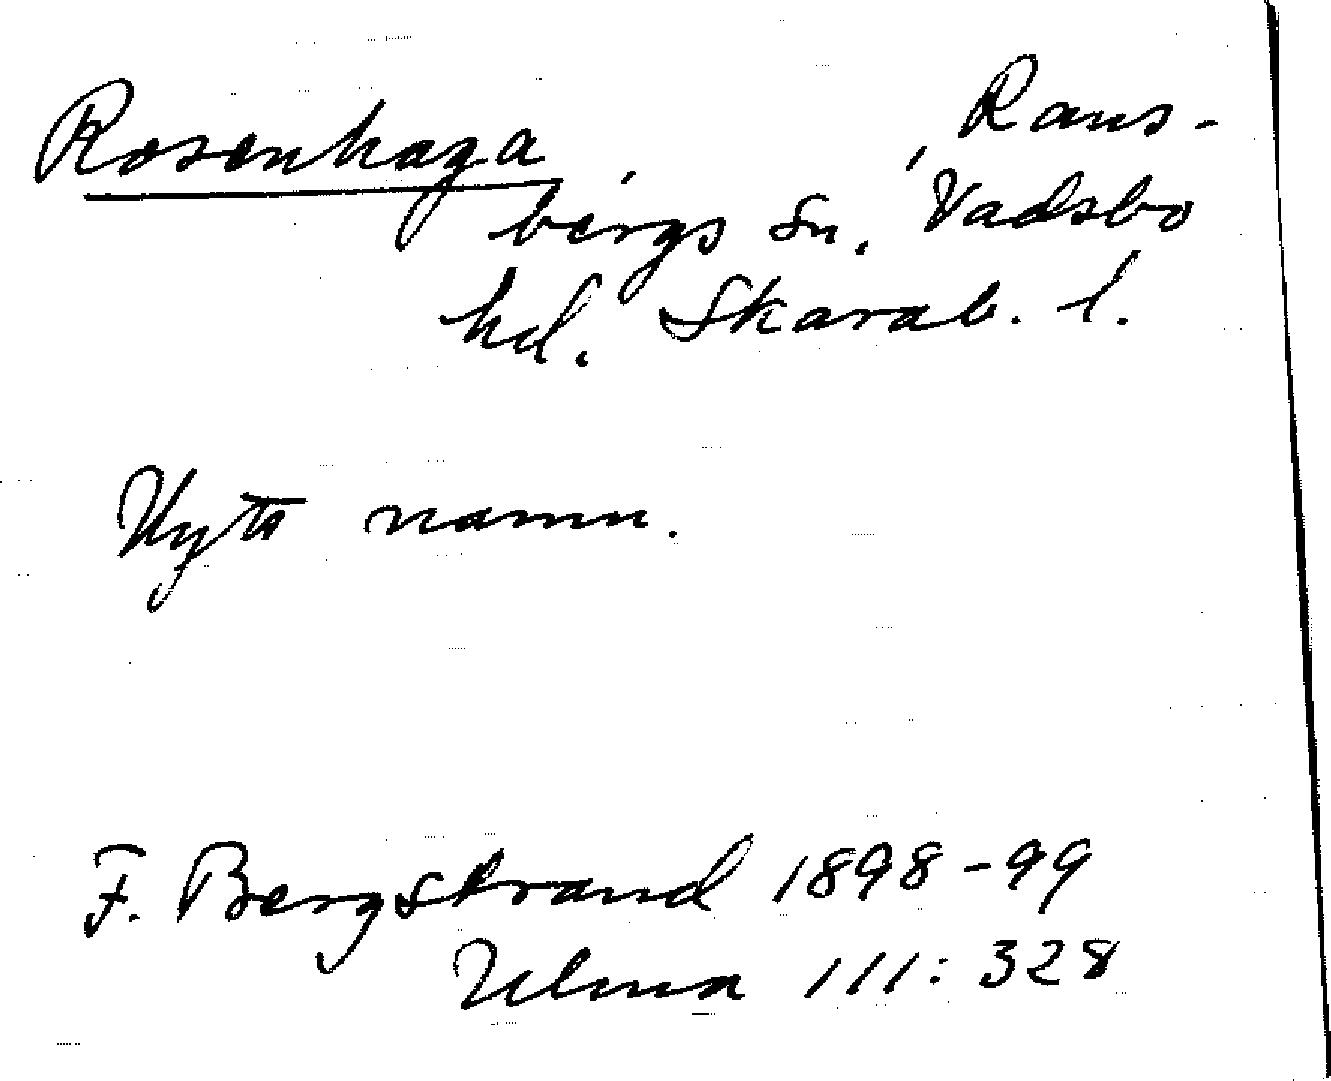 Rosenhaga, , Rans-
bergs sn. Vadsbo
hd. Skarab. l.
Nytt namn.
F. Bergstrand 1898-99
Ulma 111:328